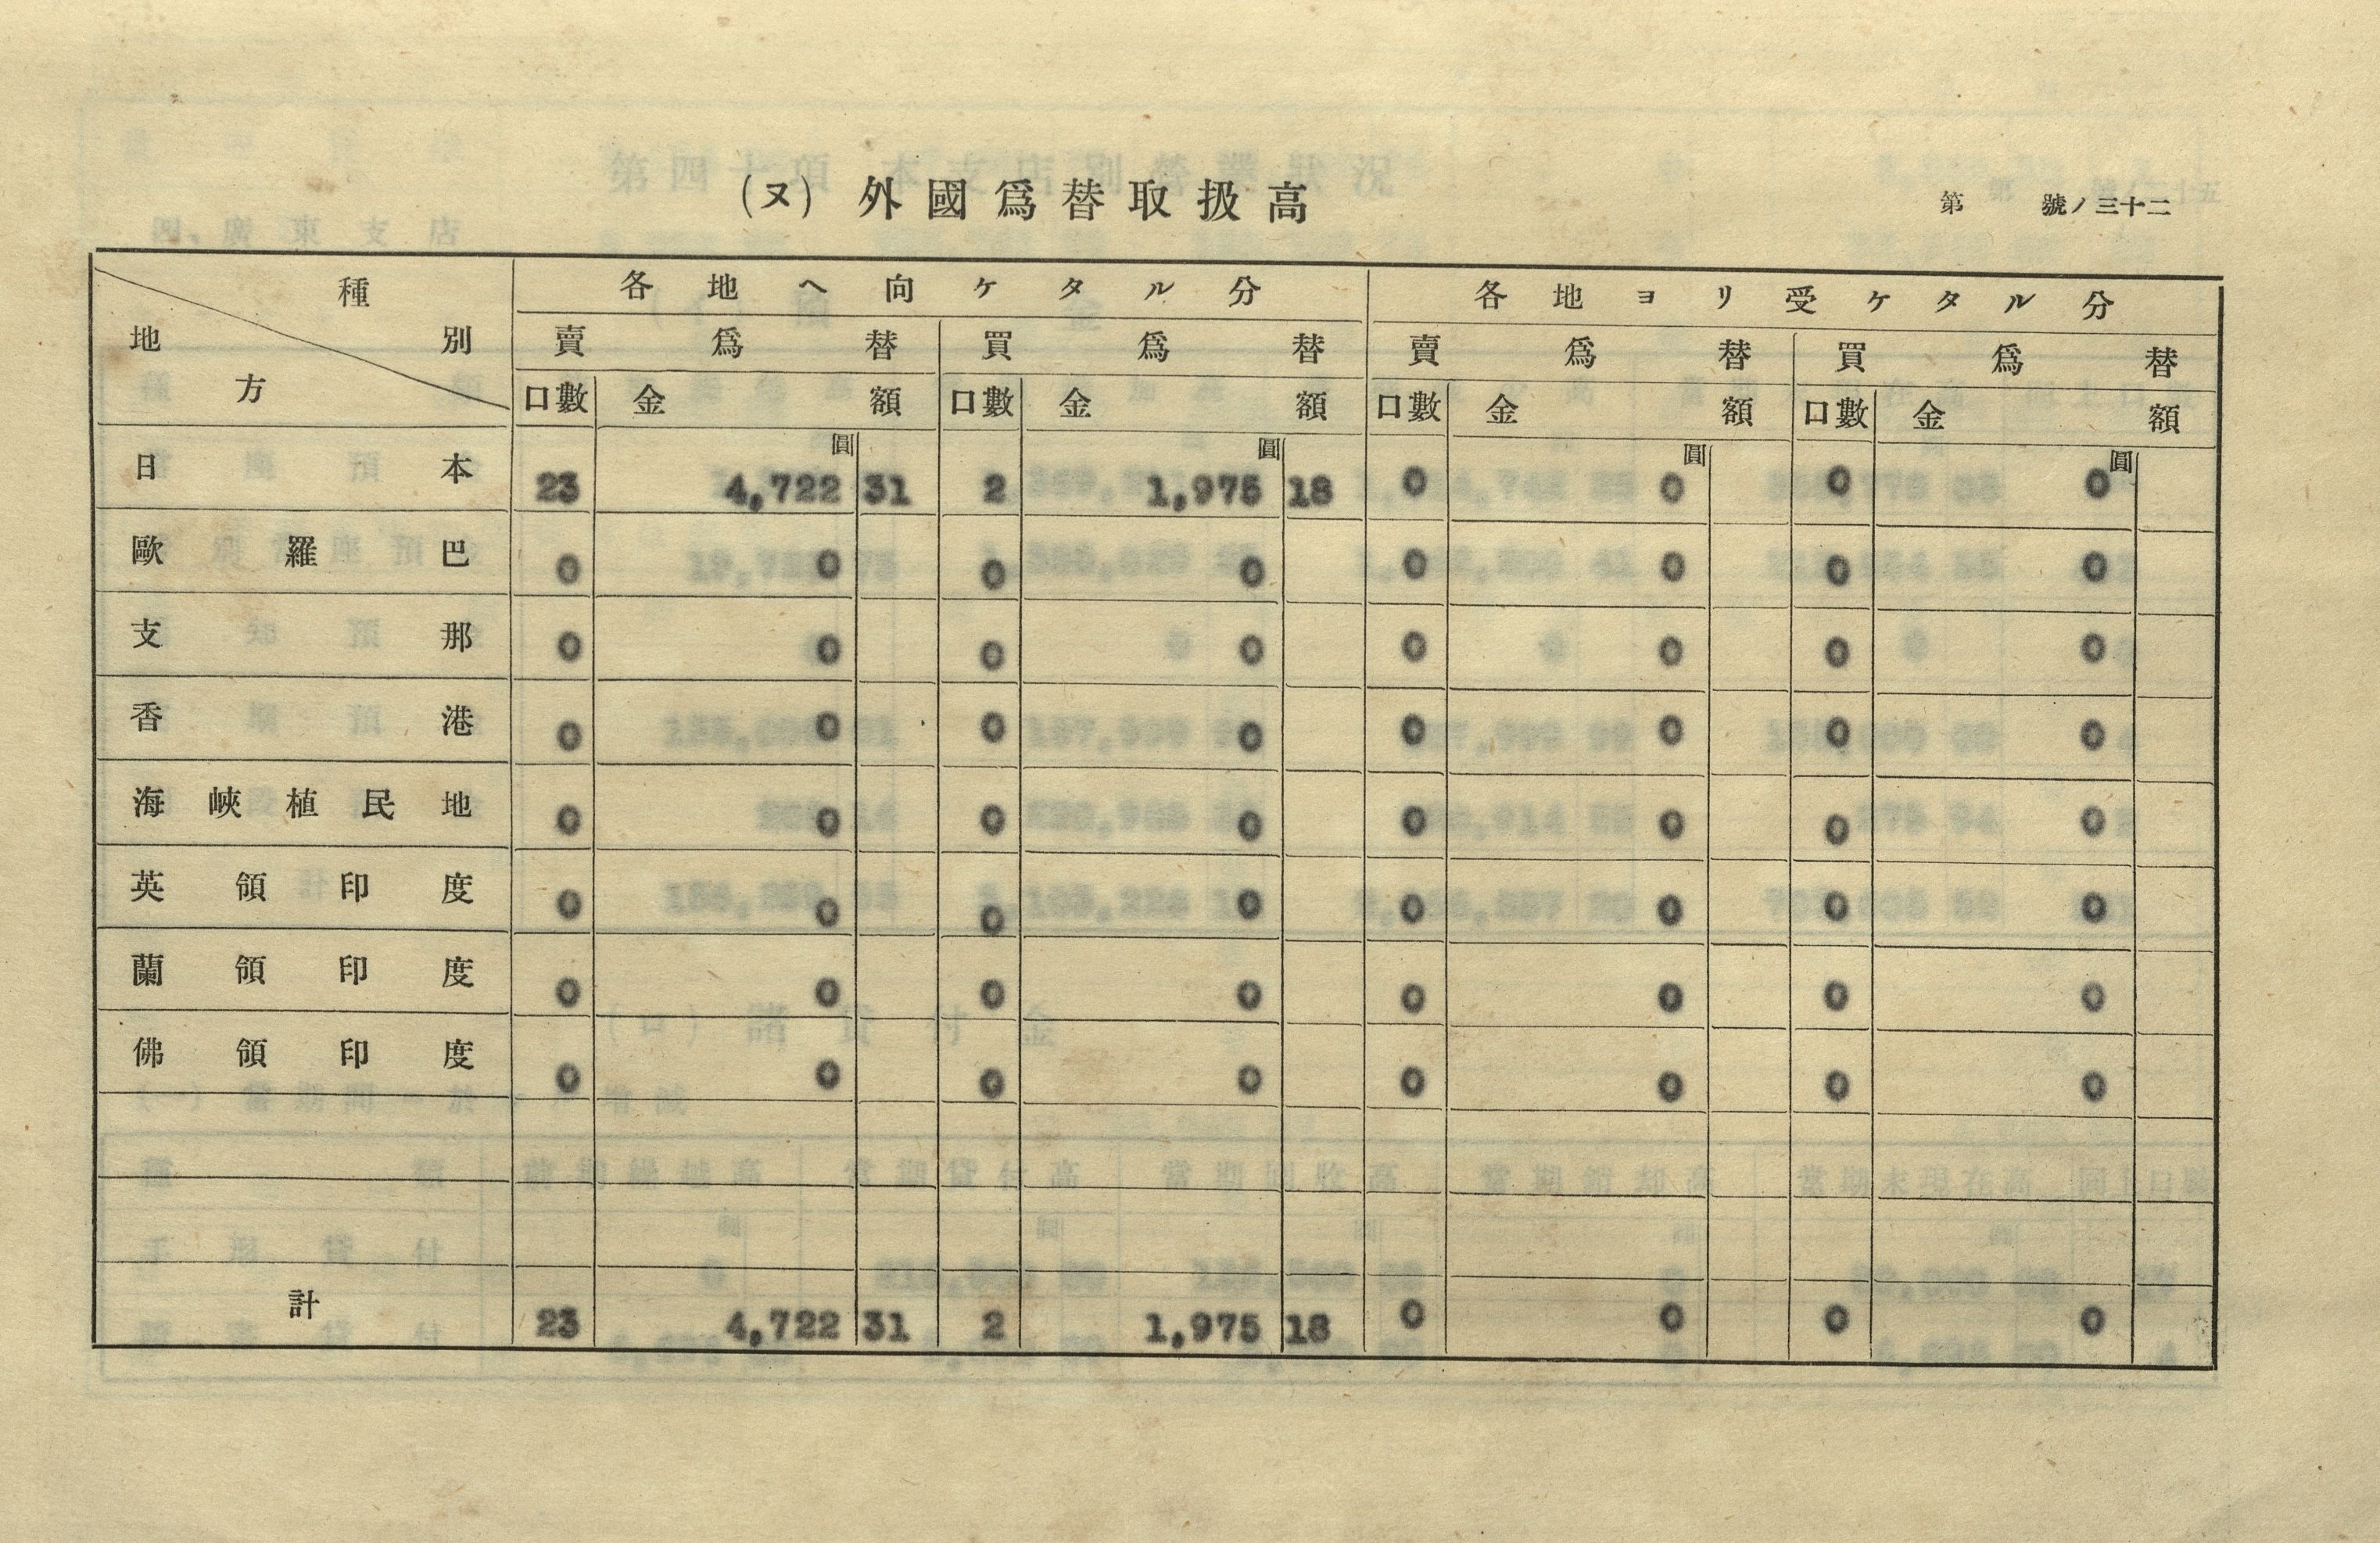 (ヌ) 外國爲替取扱高
第 號ノ三十二
種別 地方 各地ヘ向ケタル分 各地ヨリ受ケタル分
賣爲替 買爲替 賣爲替 買爲替
口數 金額 口數 金額 口數 金額 口數 金額
圓 圓 圓 圓
日本 23 4,722 31 2 1,975 18 0 0 0 0
歐羅巴 0 0 0 0 0 0 0 0
支那 0 0 0 0 0 0 0 0
香港 0 0 0 0 0 0 0 0
海峽植民地 0 0 0 0 0 0 0 0
英領印度 0 0 0 0 0 0 0 0
蘭領印度 0 0 0 0 0 0 0 0
佛領印度 0 0 0 0 0 0 0 0
計 23 4,722 31 2 1,975 18 0 0 0 0